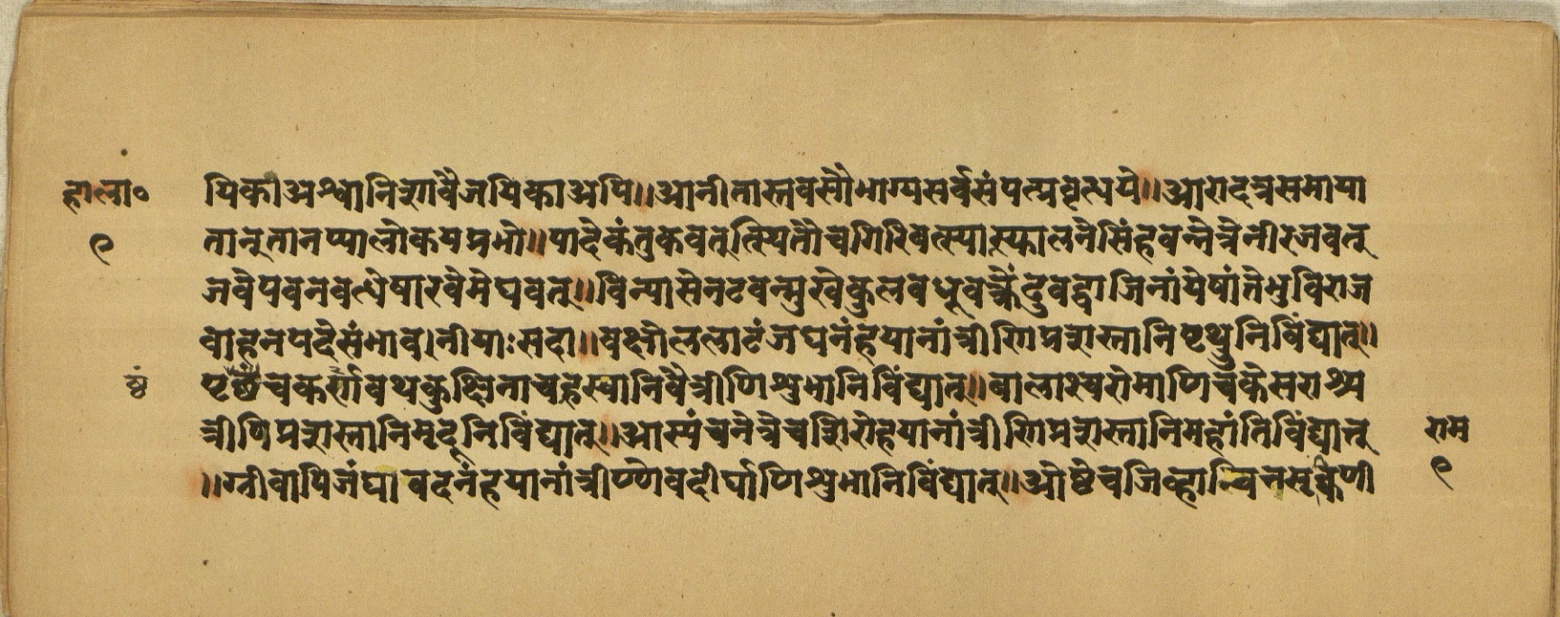 हाला०
९
यिकाअश्वानिशावैजयिकाअपि॥आनीतास्तवसौभाग्यसर्वसंपत्प्रवृत्धये॥आरादत्रसमाया
तानूतानप्यालोकयप्रभो॥पादैकंतुकवतूत्स्थितौचगिरिवत्स्यास्फालनेसिंहवन्नेत्रेनीरजवतू
जवेपवनवत्धेषारवेमेघवतू॥विन्यासेनटवन्मुखेकुलवधूवक्त्रेंदुवद्वाजिनांयेषांतेभुविराज
वाहनपदेसंभावनीयाःसदा॥वक्षोललाटंजघनंहयानांत्रीणिप्रशस्तानिपृथुनिविंद्यात्॥
ष्ठं
पृष्ठंचकर्णावथकुक्षिनाचह्रस्वानिवैत्रीणिशुभानिविंद्यातू॥बालाश्चरोमाणिचकेसराश्च
त्रीणिप्रशस्तानिमृदूनिविंद्यात्॥आस्यंचनेत्रेचशिरोहयानांत्रीणिप्रशस्तानिमहांतिविंद्यातू
॥ग्नीवापिजंघावदनंहयानांत्रीण्येवदीर्घाणिशुभानिविंद्यातू॥ओष्ठेचजिव्हा
राम
९